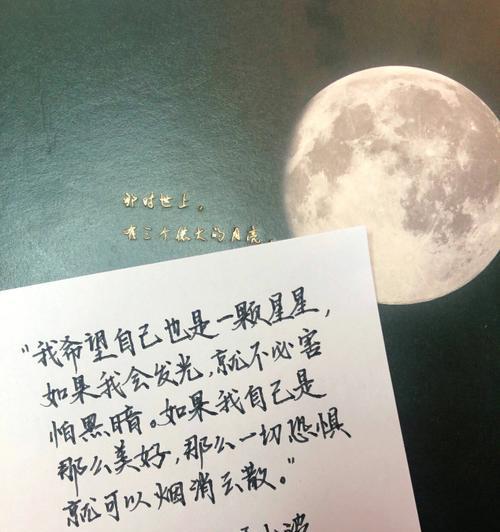 那时世上，
有三个候火的月亮，
"我希望自己也是一颗星星，
如果我会发光，就不必害
怕黑暗。如果我自己是
那么美好，那么一切恐惧
就可以烟消云散。"